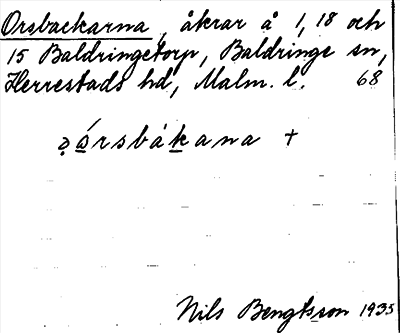 Orsbackarna, åkrar å 1, 18 och
15 Baldringetorp, Baldringe sn,
Herrestads hd, Malm. l. 68
ə̣ó̱rsbák̲ana +
Nils Bengtsson 1935